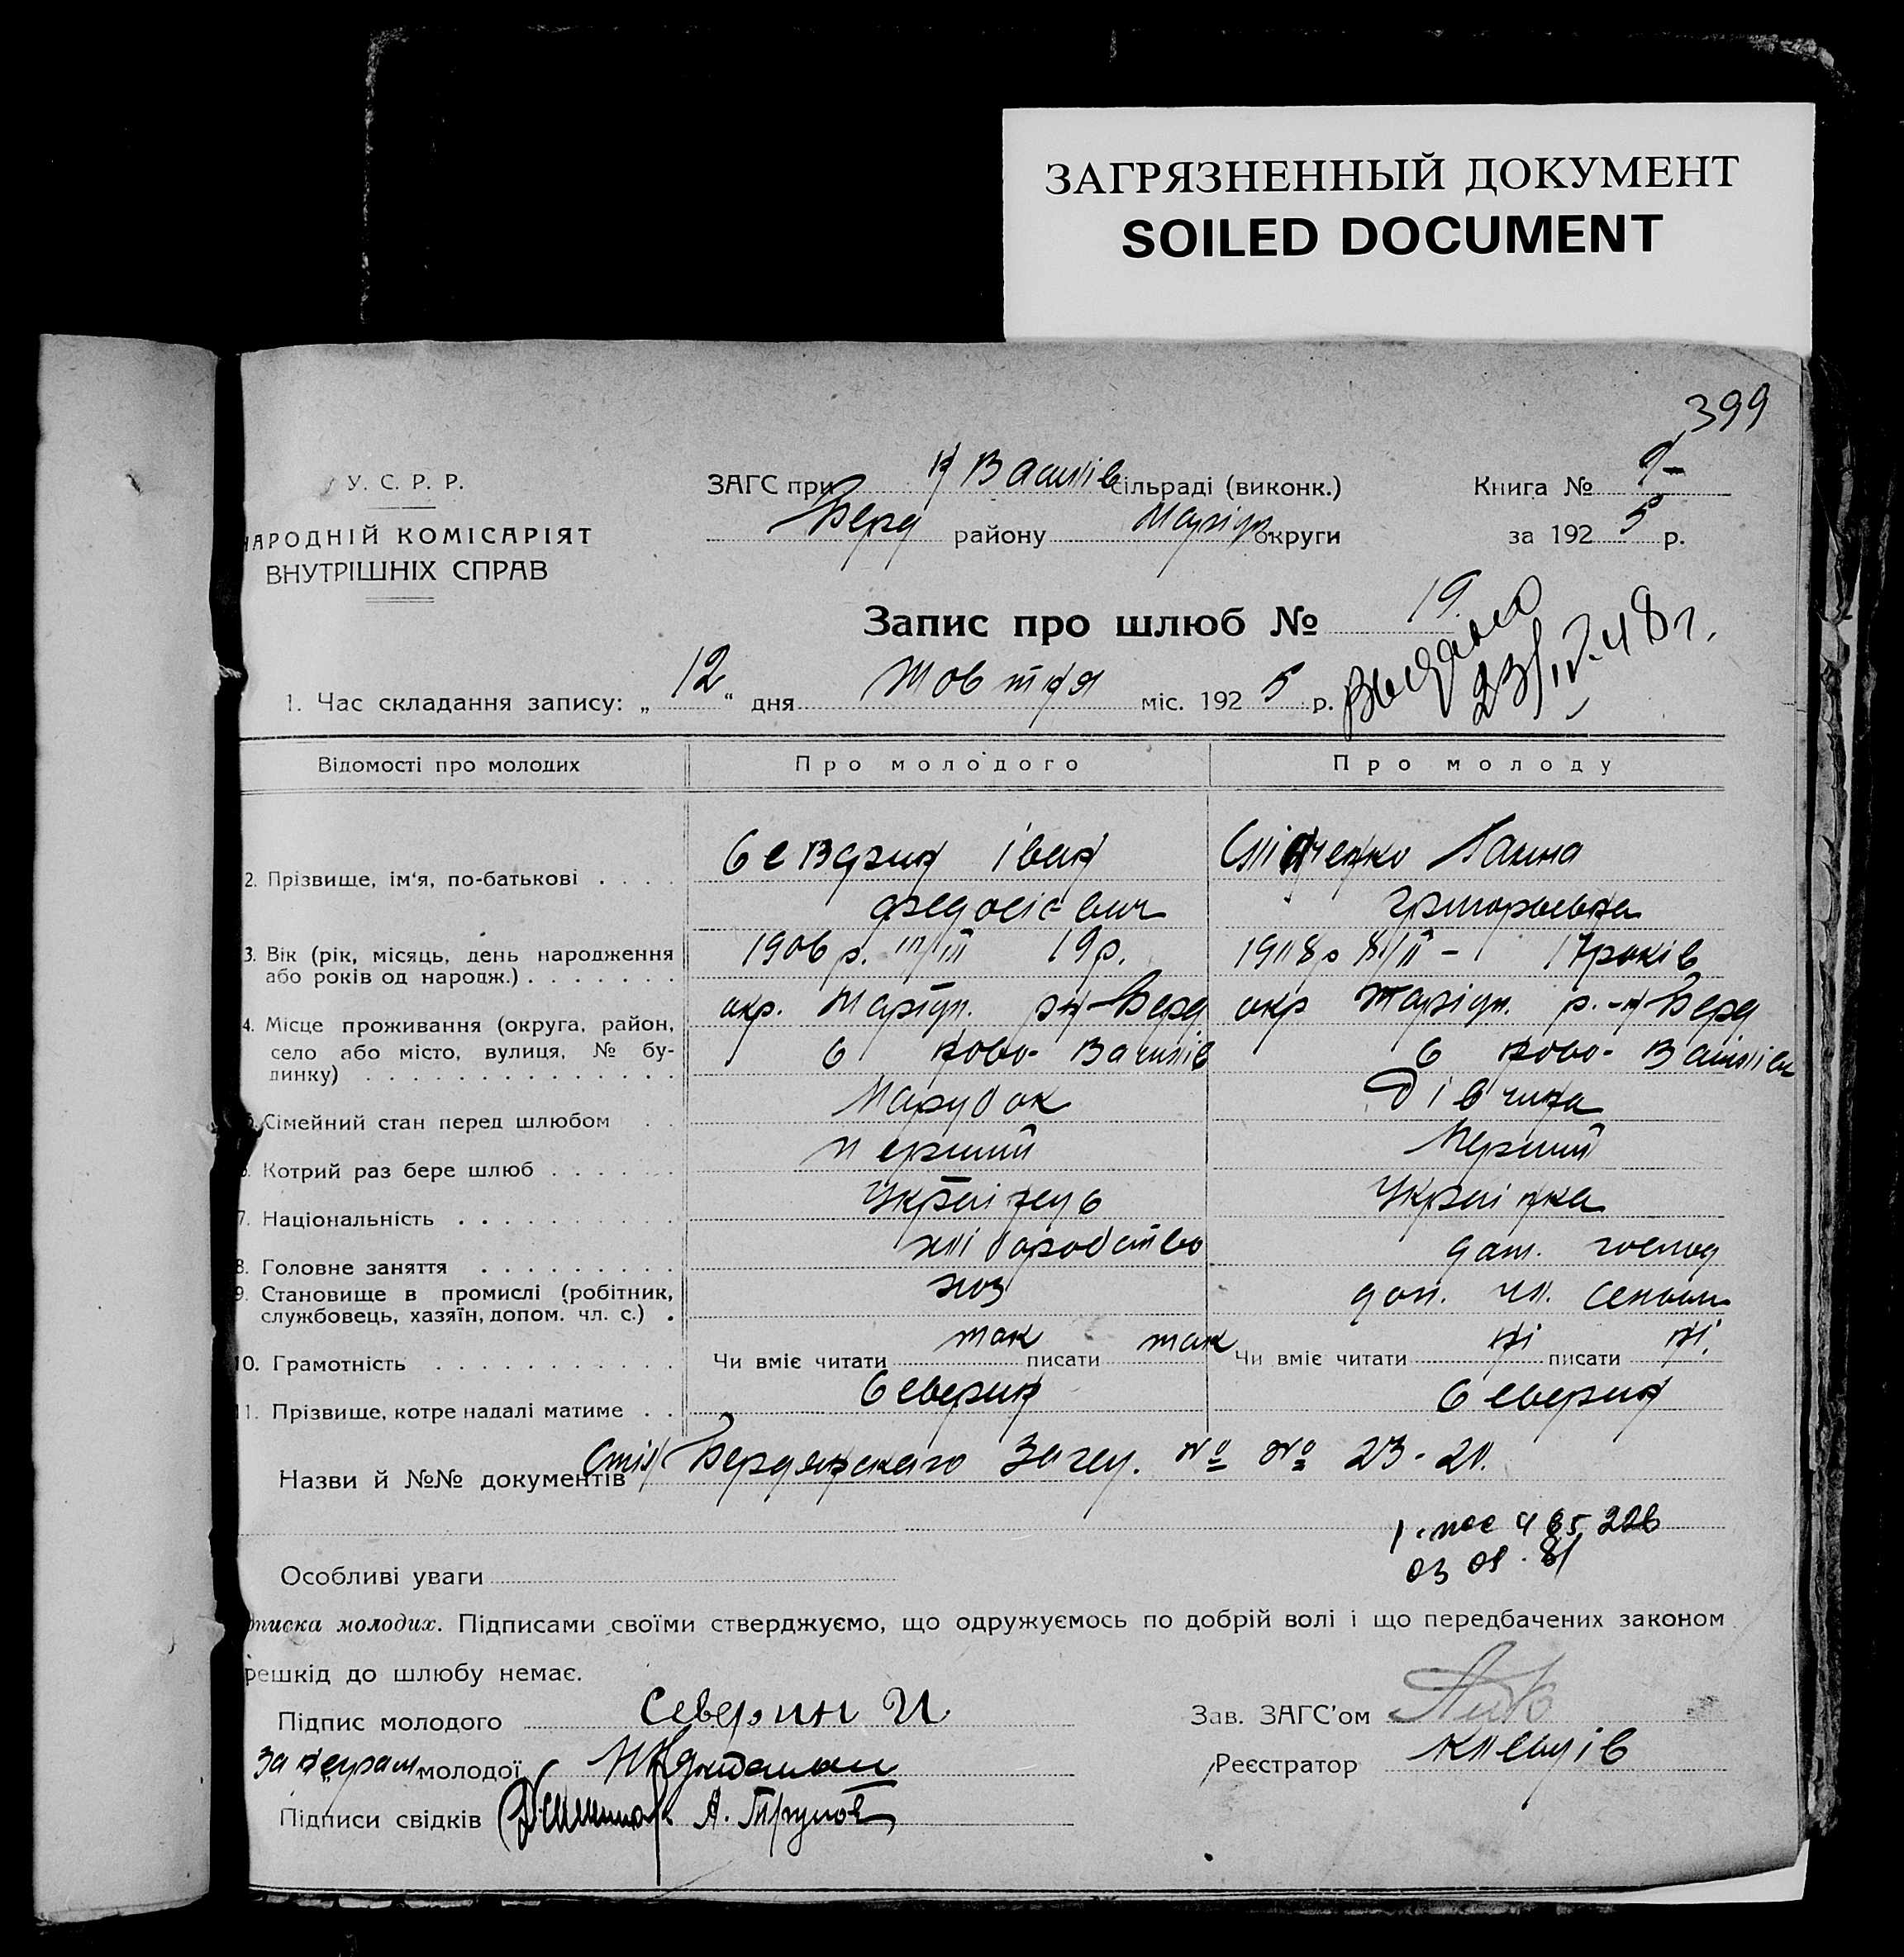 ЗАГРЯЗНЕННЫЙ ДОКУМЕНТ
SOILED DOCUMENT
399
У. С. Р. Р.
НАРОДНІЙ КОМІСАРІЯТ
ВНУТРІШНІХ СПРАВ
ЗАГС при Н Василів сільраді (виконк.)
Берд району Маріуп округи
Книга №
за 1925 р.
Запис про шлюб № 19.
Выдано 23/IV.48 г.
1. Час складання запису: „ 12 “ дня Жовтня міс. 1925 р.
Відомості про молодих Про молодого Про молоду
2. Прізвище, ім'я, по-батькові . . . . Северин Іван Ганна
Федосієвич Григорьевна
3. Вік (рік, місяць, день народження 1906 р. 19 р. 17 років
або років од народж.) . . . . . . .
4. Місце проживання (округа, район, окр. Маріуп. р-н Берд окр Маріуп. р.-н Берд
село або місто, вулиця, № бу- с ново-Василів с ново-Василівк
динку) . . . . . . . . . . . . . .
5. Сімейний стан перед шлюбом . . Парубок Дівчина
6. Котрий раз бере шлюб . . . . . . перший Перший
7. Національність . . . . . . . . . . Українець Українка
8. Головне заняття . . . . . . . . . хліборобство дом. господ
9. Становище в промислі (робітник, хоз доп. чл. семьи
службовець, хазяїн, допом. чл. с.) .
10. Грамотність . . . . . . . . . . . . Чи вміє читати так писати так Чи вміє читати ні писати ні.
11. Прізвище, котре надалі матиме . . Северин Северин
Назви й №№ документів Бердянского Загсу. № № 23-21.
226
03 08 . 81
Особливі уваги
писка молодих. Підписами своїми стверджуємо, що одружуємось по добрій волі і що передбачених законом
решкід до шлюбу немає.
Підпис молодого Северин И
Зав. ЗАГС'ом
За неграм. молодої
Реєстратор
Підписи свідків